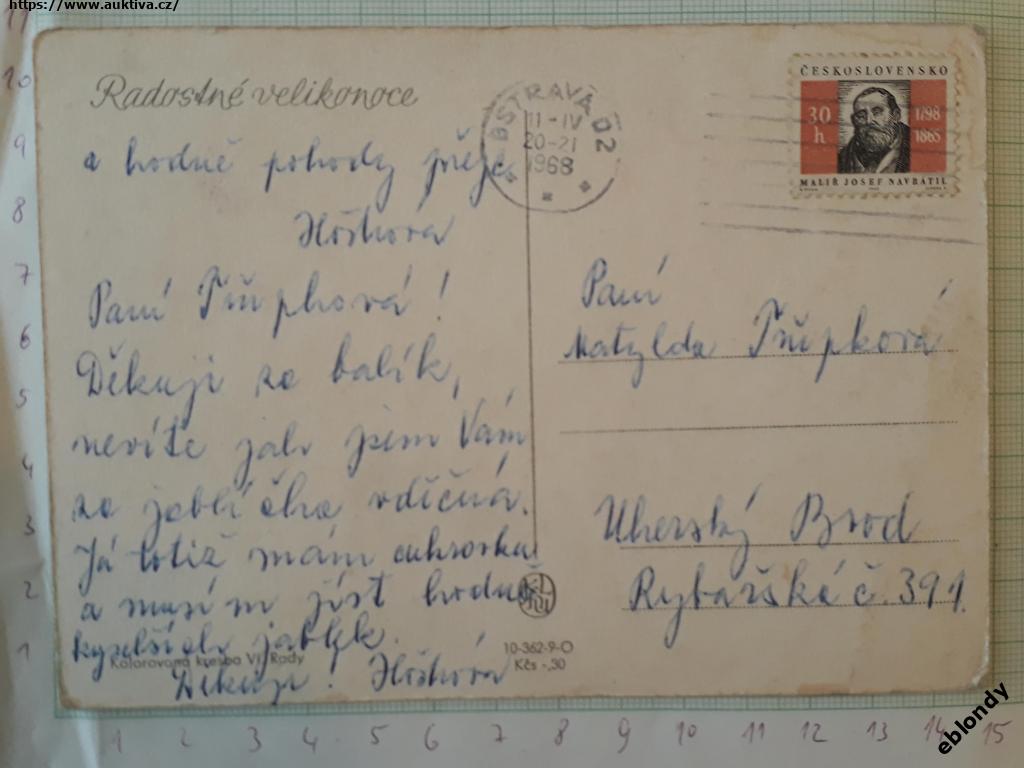 https://www.auktiva.cz/
Radostné velikonoce
a hodně pohody přeje
Paní
Děkuji za balík,
nevíte jak jsem Vám
za jablíčka vděčná.
Já totiž mám cukrovku
a musím jíst hodně
kyselších jablek.
Děkuji!
Kolorovaná kresba Vl. Rady
10-362-9-O
Kčs -,30
OSTRAVA 02
11-IV
20-21
1968
ČESKOSLOVENSKO
30 h
1798
1865
MALÍŘ JOSEF NAVRÁTIL
Paní
Matylda
Uherský Brod
Rybářská č. 391.
11
10
9
8
7
6
5
4
3
2
1
1 2 3 4 5 6 7 8 9 10 11 12 13 14 15
eblondy